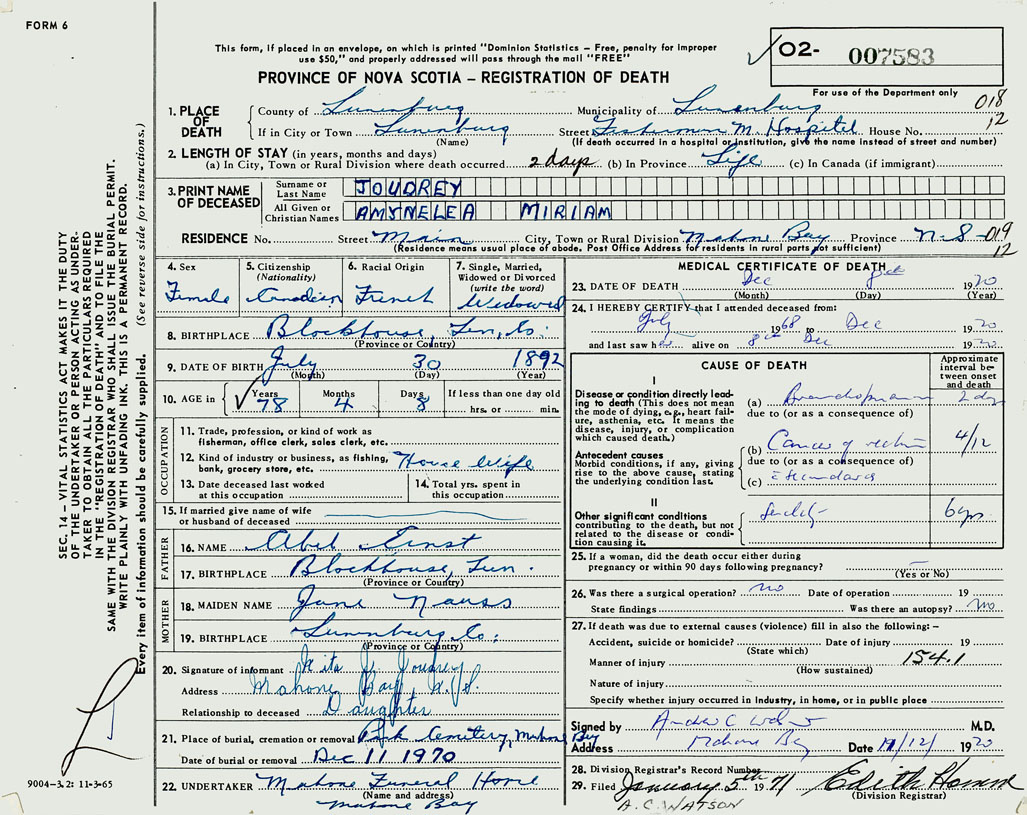 FORM 6
This form, if placed in an envelope, on which is printed "Dominion Statistics – Free, penalty for improper
use $50," and properly addressed will pass through the mail "FREE"
O2- 007583
For use of the Department only
PROVINCE OF NOVA SCOTIA – REGISTRATION OF DEATH
018
12
1. PLACE OF DEATH
County of Lunenburg Municipality of Lunenburg
If in City or Town Lunenburg Street Fishermen M. Hospital House No.
(Name) (If death occurred in a hospital or institution, give the name instead of street and number)
2. LENGTH OF STAY (in years, months and days)
(a) In City, Town or Rural Division where death occurred 2 days (b) In Province Life (c) In Canada (if immigrant)
3. PRINT NAME OF DECEASED
Surname or Last Name JOUDREY
All Given or Christian Names AMYNELEA MIRIAM
RESIDENCE No. Street Main City, Town or Rural Division Mahone Bay Province N.S. 019
12
(Residence means usual place of abode. Post Office Address for residents in rural parts not sufficient)
4. Sex Female
5. Citizenship (Nationality) Canadian
6. Racial Origin French
7. Single, Married, Widowed or Divorced (write the word) Widowed
8. BIRTHPLACE Blockhouse, Lun. Co.
(Province or Country)
9. DATE OF BIRTH July 30 1892
(Month) (Day) (Year)
10. AGE in Years 78 Months 4 Days 8 If less than one day old
hrs. or min.
OCCUPATION
11. Trade, profession, or kind of work as
fisherman, office clerk, sales clerk, etc.
12. Kind of industry or business, as fishing,
bank, grocery store, etc. House Wife
13. Date deceased last worked
at this occupation
14. Total yrs. spent in
this occupation
15. If married give name of wife
or husband of deceased
FATHER
16. NAME Abel Ernst
17. BIRTHPLACE Blockhouse, Lun.
(Province or Country)
MOTHER
18. MAIDEN NAME Jane Nauss
19. BIRTHPLACE Lunenburg Co.
(Province or Country)
20. Signature of informant Rita J. Joudrey
Address Mahone Bay, N.S.
Relationship to deceased Daughter
21. Place of burial, cremation or removal Park Cemetery, Mahone Bay
Date of burial or removal Dec 11 1970
22. UNDERTAKER Mahone Funeral Home
(Name and address)
Mahone Bay
MEDICAL CERTIFICATE OF DEATH
23. DATE OF DEATH Dec 8th 1970
(Month) (Day) (Year)
24. I HEREBY CERTIFY that I attended deceased from:
July 1968 to Dec 1970
and last saw her alive on 8th Dec 1970
CAUSE OF DEATH
Approximate interval between onset and death
I
Disease or condition directly leading
to death (This does not mean
the mode of dying, e.g., heart failure,
asthenia, etc. It means the
disease, injury, or complication
which caused death.)
(a) 2 dy
due to (or as a consequence of)
Antecedent causes
Morbid conditions, if any, giving
rise to the above cause, stating
the underlying condition last.
(b) Cancer of rectum 4/12
due to (or as a consequence of)
(c)
II
Other significant conditions
contributing to the death, but not
related to the disease or condition
causing it.
6 yrs
25. If a woman, did the death occur either during
pregnancy or within 90 days following pregnancy?
(Yes or No)
26. Was there a surgical operation? no Date of operation 19
State findings Was there an autopsy? no
27. If death was due to external causes (violence) fill in also the following: –
Accident, suicide or homicide? Date of injury 19
(State which)
Manner of injury 154.1
(How sustained)
Nature of injury
Specify whether injury occurred in industry, in home, or in public place
Signed by M.D.
Address Mahone Bay Date 11/12/ 1970
28. Division Registrar's Record Number
29. Filed January 5th 1971 Edith
(Division Registrar)
A.C. WATSON
SEC. 14 – VITAL STATISTICS ACT MAKES IT THE DUTY
OF THE UNDERTAKER OR PERSON ACTING AS UNDER-
TAKER TO OBTAIN ALL THE PARTICULARS REQUIRED
IN THE "REGISTRATION OF DEATH" AND TO FILE THE
SAME WITH THE DIVISION REGISTRAR WHO SHALL ISSUE THE BURIAL PERMIT.
WRITE PLAINLY WITH UNFADING INK. THIS IS A PERMANENT RECORD.
Every item of information should be carefully supplied. (See reverse side for instructions.)
9004-3.2: 11-3-65